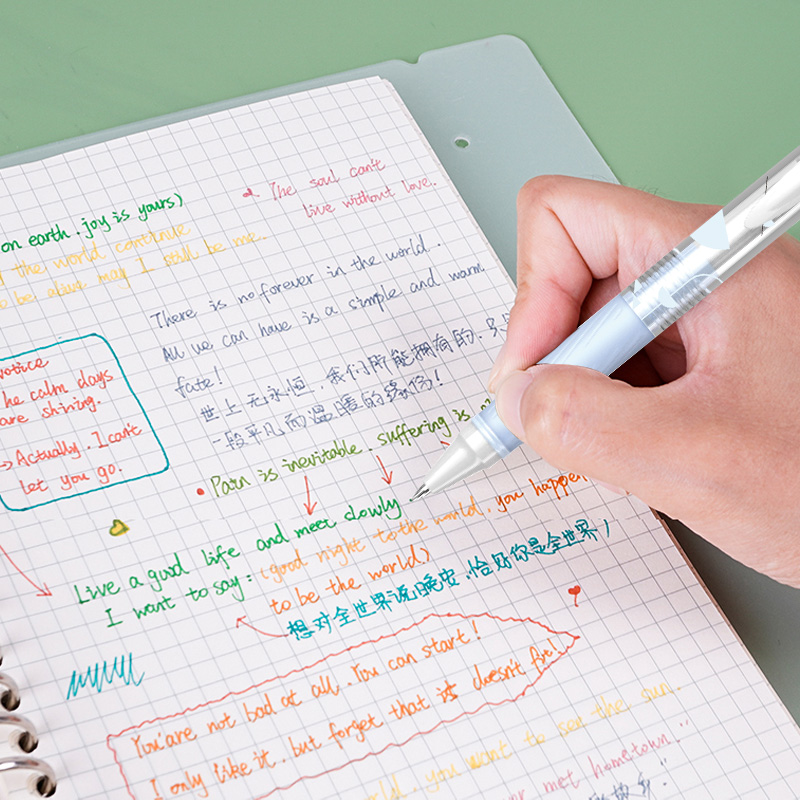 on earth. joy is yours)
the world continue
be alive may I still be me.
The soul can't
live without love.
There is no forever in the world.
All we can have is a simple and warm
fate!
世上无永恒，我们所能拥有的，只
一段平凡而温暖的缘份！
Notice
The calm days
are shining.
→ Actually. I can't
let you go.
Pain is inevitable. suffering is
Live a good life and meet slowly.
I want to say: (good night to the world. you happen
to be the world)
想对全世界说晚安，恰好你是全世界！
You're not bad at all. You can start!
I only like it. but forget that it is doesn't fire!
world, you want to see the sun.
met hometown."